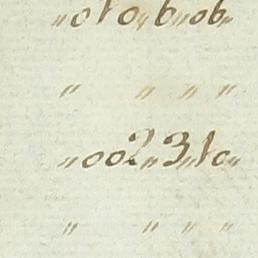 „010„6„06„
„ „ „ „
„002„3„10„
„ „ „ „